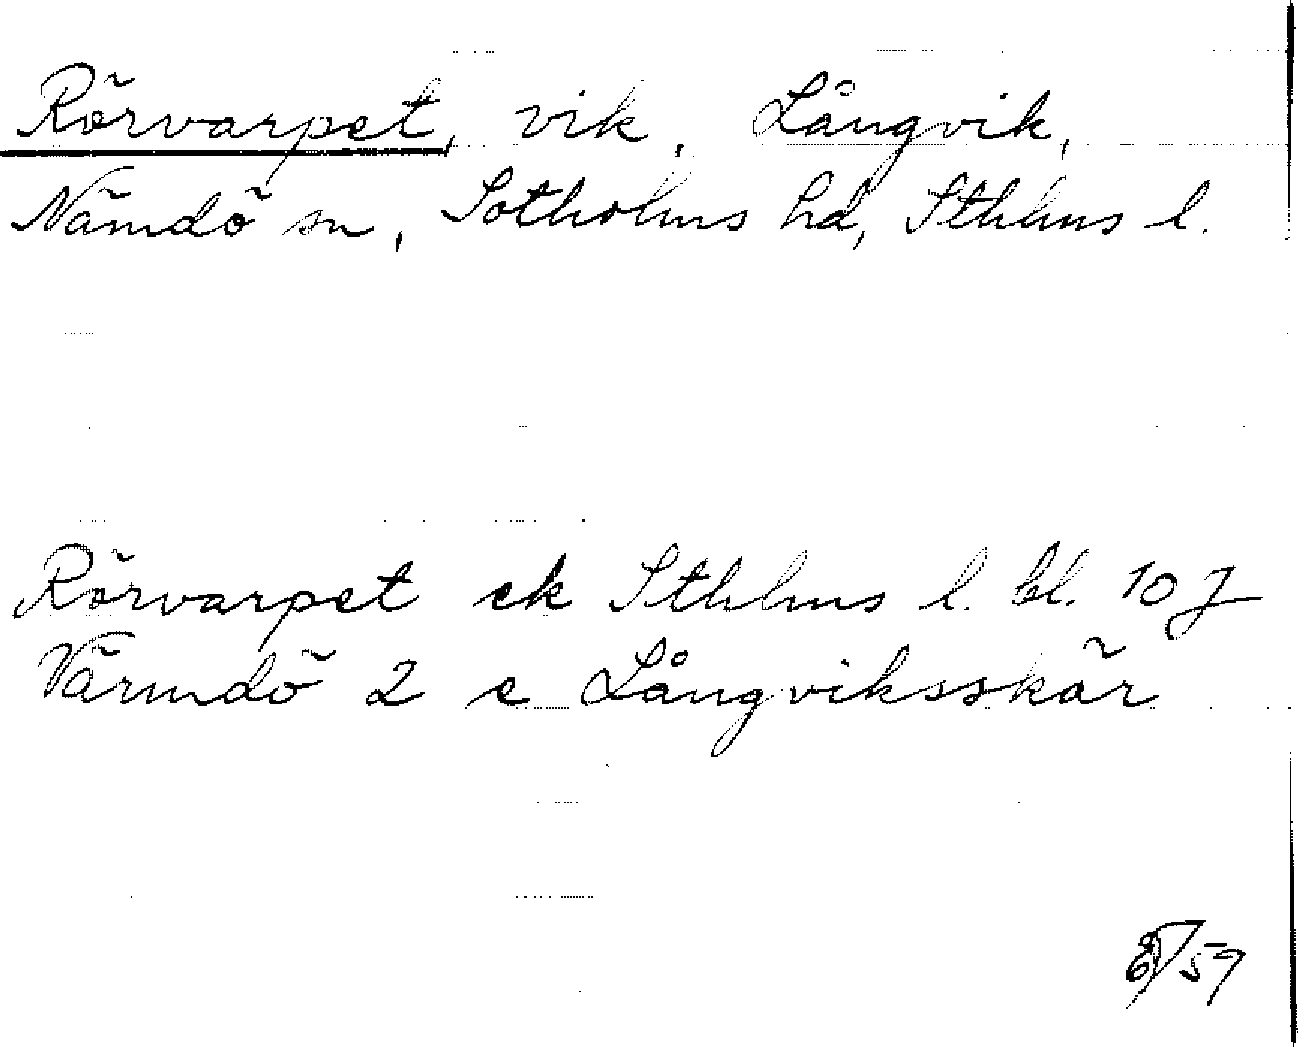 Rörvarpet, vik, Långvik,
Nämdö sn, Sotholms hd, Sthlms l.
Rörvarpet ek Sthlms l. bl. 10 J
Värmdö 2 e Långviksskär
59